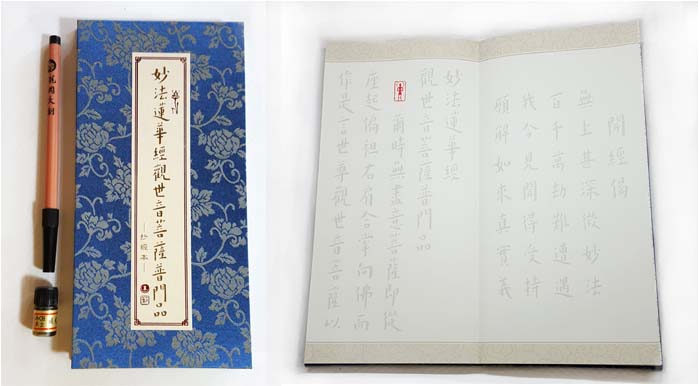 妙法蓮華經觀世音菩薩普門品
—抄經本—
開經偈
無上甚深微妙法
百千萬劫難遭遇
我今見聞得受持
願解如來真實義
妙法蓮華經
觀世音菩薩普門品
爾時無盡意菩薩即從
座起偏袒右肩合掌向佛而
作是言世尊觀世音菩薩以